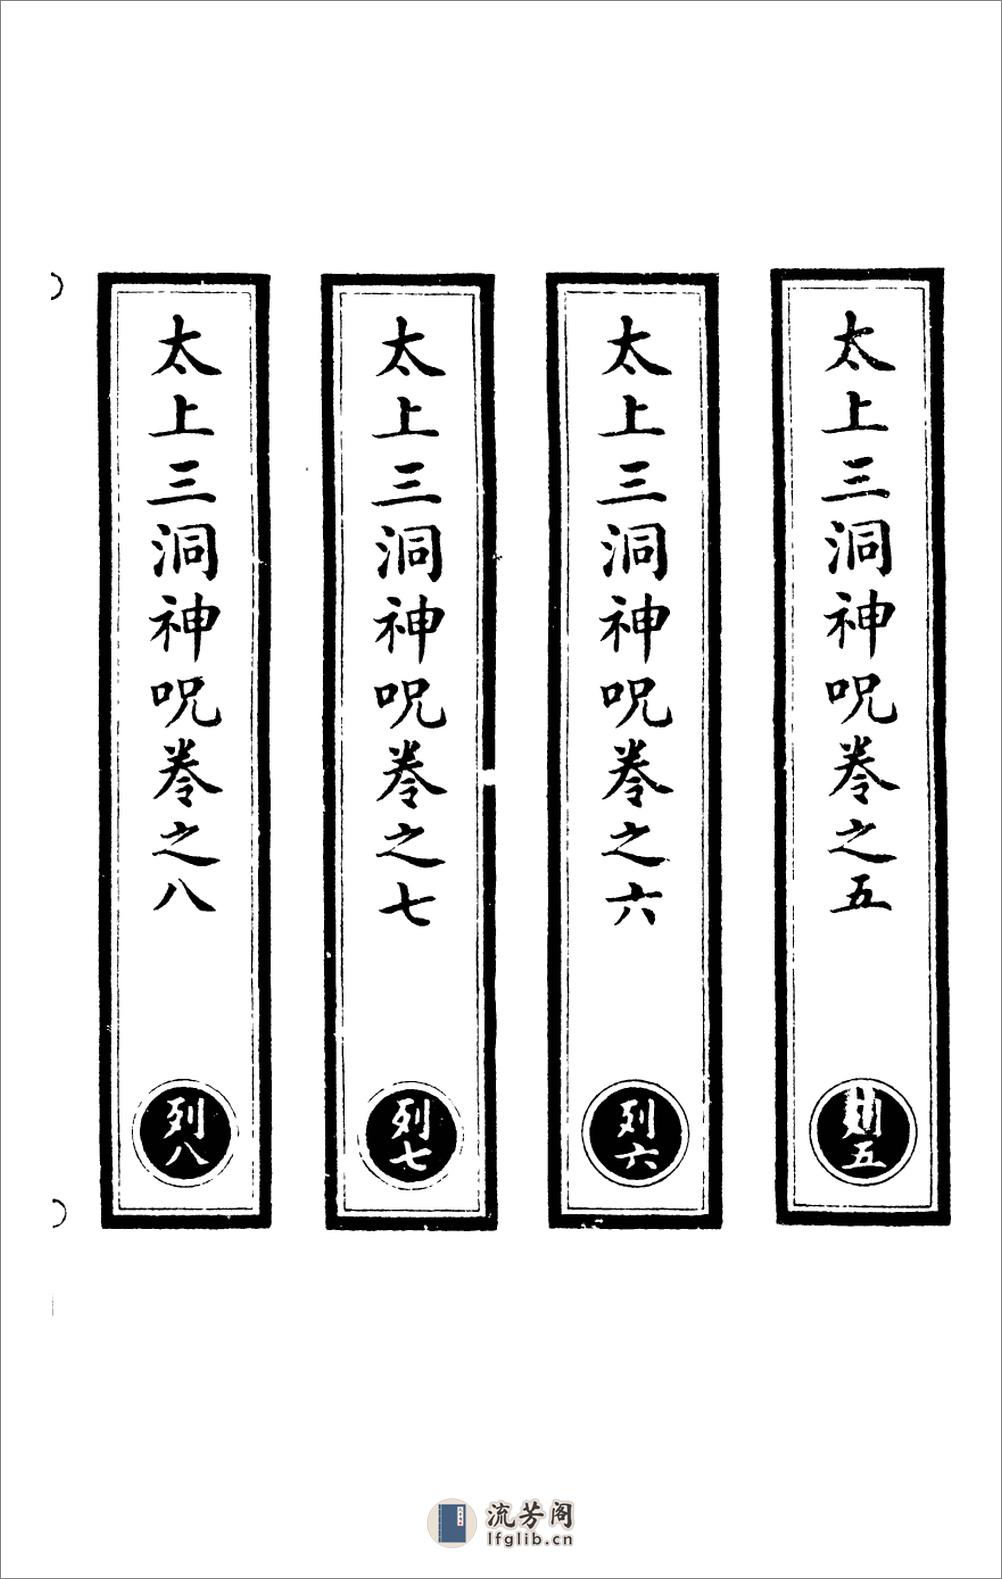 太上三洞神呪卷之五
列五
太上三洞神呪卷之六
列六
太上三洞神呪卷之七
列七
太上三洞神呪卷之八
列八
流芳阁
lfglib.cn